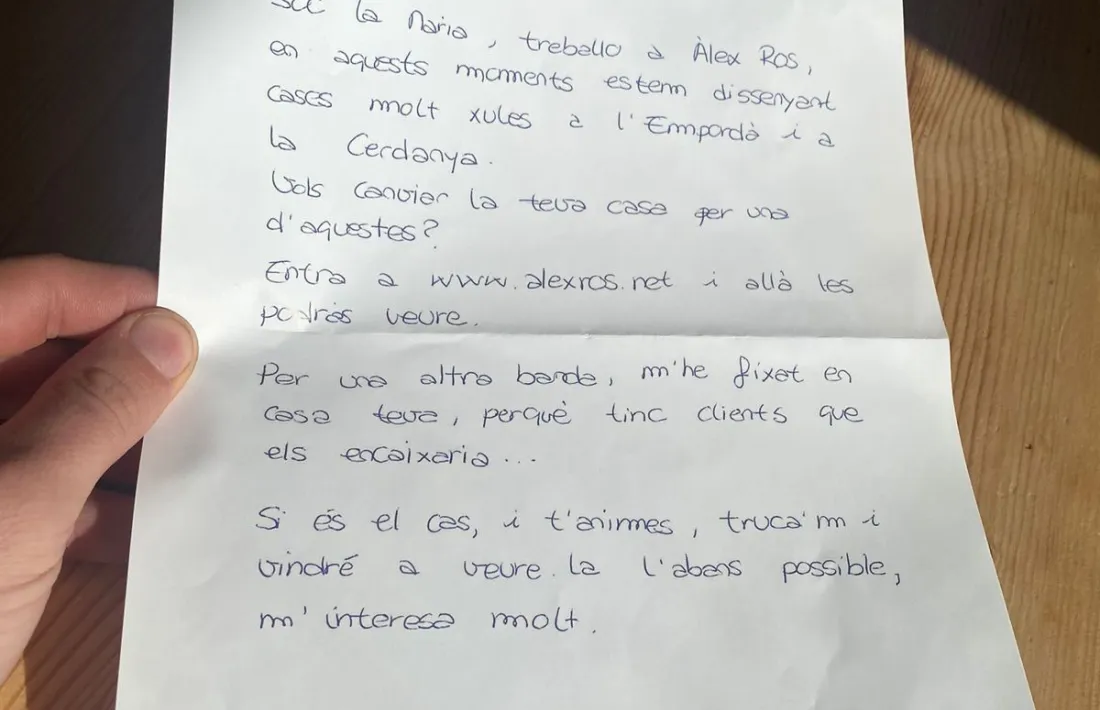 Sóc la Maria, treballo a Àlex Ros,
en aquests moments estem dissenyant
cases molt xules a l'Empordà i a
la Cerdanya.
Vols canviar la teva casa per una
d'aquestes?
Entra a www.alexros.net i allà les
podràs veure.
Per una altra banda, m'he fixat en
casa teva, perquè tinc clients que
els encaixaria...
Si és el cas, i t'animes, truca'm i
vindré a veure-la l'abans possible,
m'interesa molt.